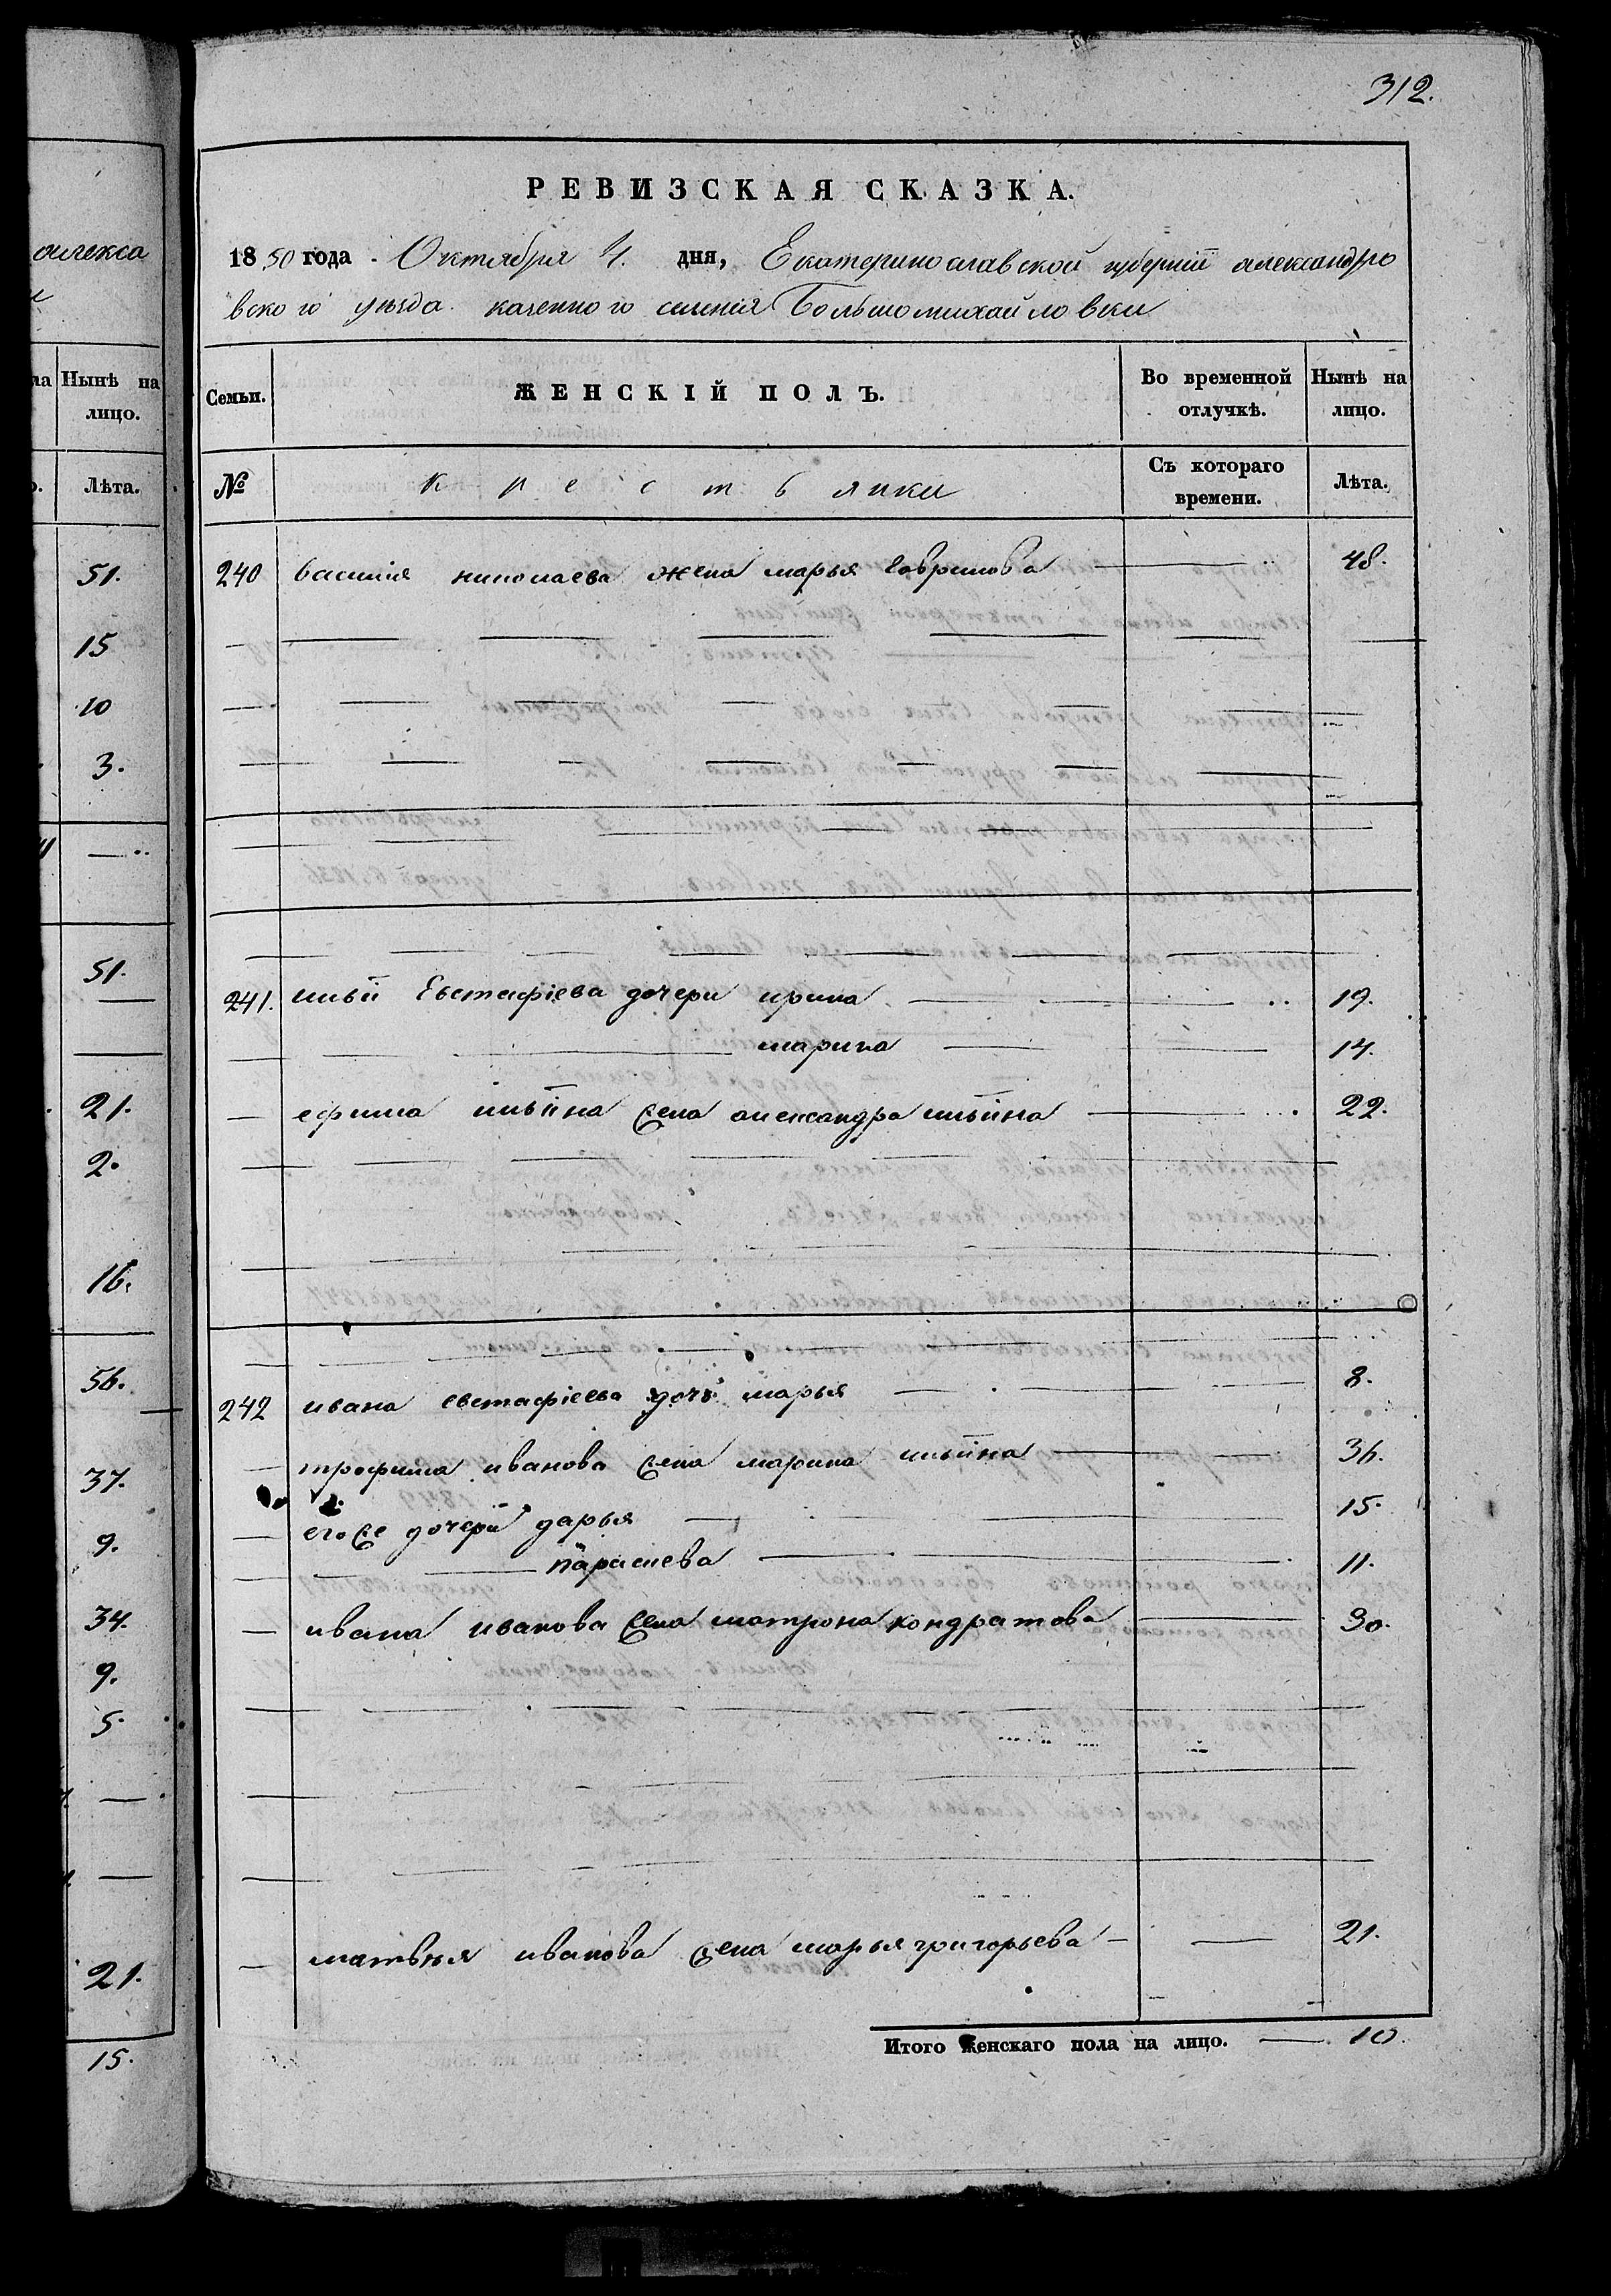 312.
РЕВИЗСКАЯ СКАЗКА.
1850 года. Октября 4. дня, Екатеринославской губернїи александро
вского уѣзда. казенного селения Большомихайловки
Семьи.
ЖЕНСКІЙ ПОЛЪ.
Во временной отлучкѣ.
Нынѣ на лицо.
№
крестьянки
Съ котораго времени.
Лѣта.
240 василия николаева жена марья гаврилова — 48.
241. ильи Евстафіева дочери ирина — 19.
— марина — 14.
— ефима ильина жена александра ильина — 22.
242 ивана евстафіева дочь марья — 8.
— трофима иванова жена марина ильина — 36.
— его же дочери дарья — 15.
— парасгева — 11.
— ивана иванова жена матрона кондратова — 30.
— матвѣя иванова жена марья григорьева — 21.
Итого женскаго пола на лицо. — 10.
алекса
Нынѣ на лицо.
Лѣта.
51.
15
10
3.
51.
21.
2.
16.
56.
37.
9.
34.
9.
5.
21.
15.